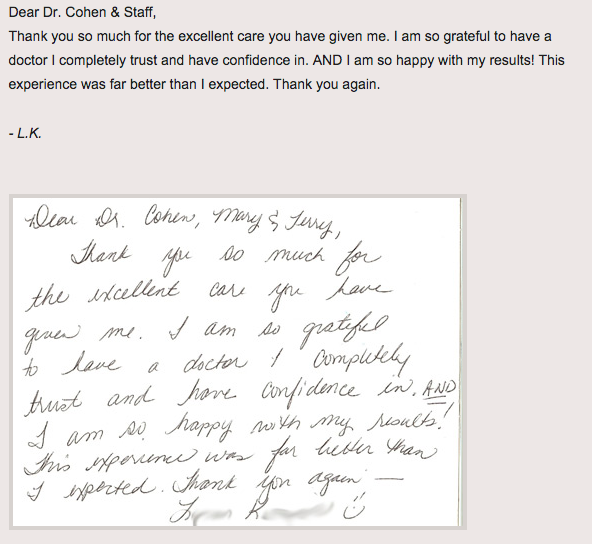 Dear Dr. Cohen & Staff,
Thank you so much for the excellent care you have given me. I am so grateful to have a
doctor I completely trust and have confidence in. AND I am so happy with my results! This
experience was far better than I expected. Thank you again.
- L.K.
Dear Dr. Cohen, Mary & Terry,
Thank you so much for
the excellent care you have
given me. I am so grateful
to have a doctor I completely
trust and have confidence in. AND
I am so happy with my results!
This experience was far better than
I expected. Thank you again —